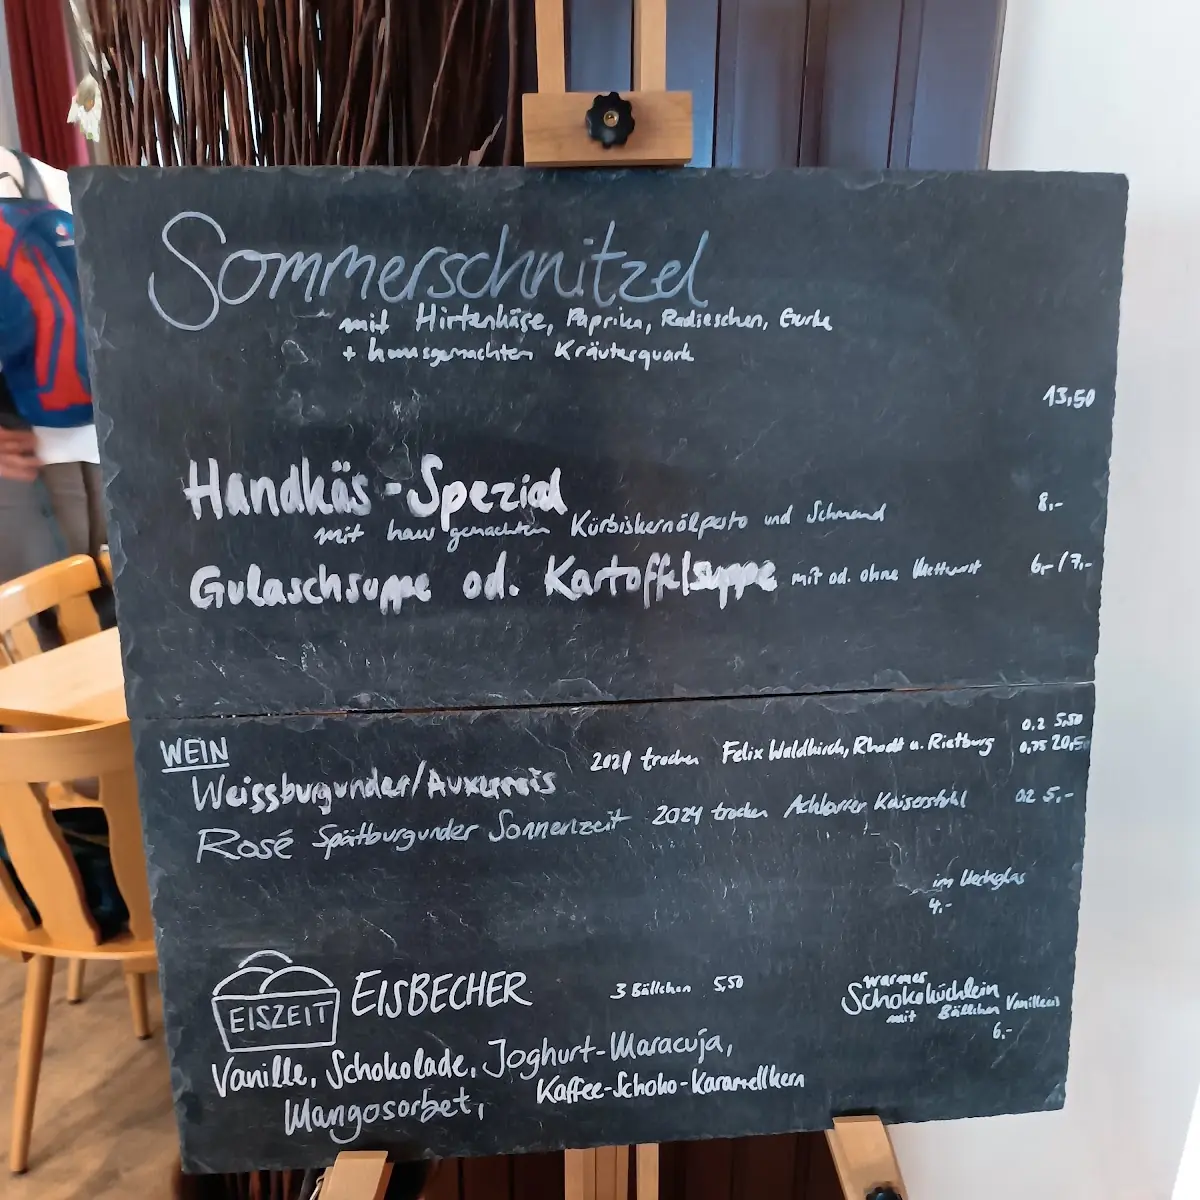 Sommerschnitzel
mit Hirtenkäse, Paprika, Radieschen, Gurke
+ hausgemachten Kräuterquark
13,50
Handkäs-Spezial 8,-
mit hausgemachten Kürbiskernölpesto und Schmand
Gulaschsuppe od. Kartoffelsuppe mit od. ohne Mettwurst 6,-/7,-
WEIN
0,2 5,50
Weissburgunder/Auxerrois 2021 trocken Felix Waldkirch, Rhodt u. Rietburg 0,75 20,50
Rosé Spätburgunder Sonnenzeit 2024 trocken Achkarrer Kaiserstuhl 0,2 5,-
im Weckglas
4,-
EISZEIT
EISBECHER 3 Bällchen 5,50
warmes
Schokoküchlein
mit Bällchen Vanilleeis
6,-
Vanille, Schokolade, Joghurt-Maracuja,
Mangosorbet, Kaffee-Schoko-Karamellkern